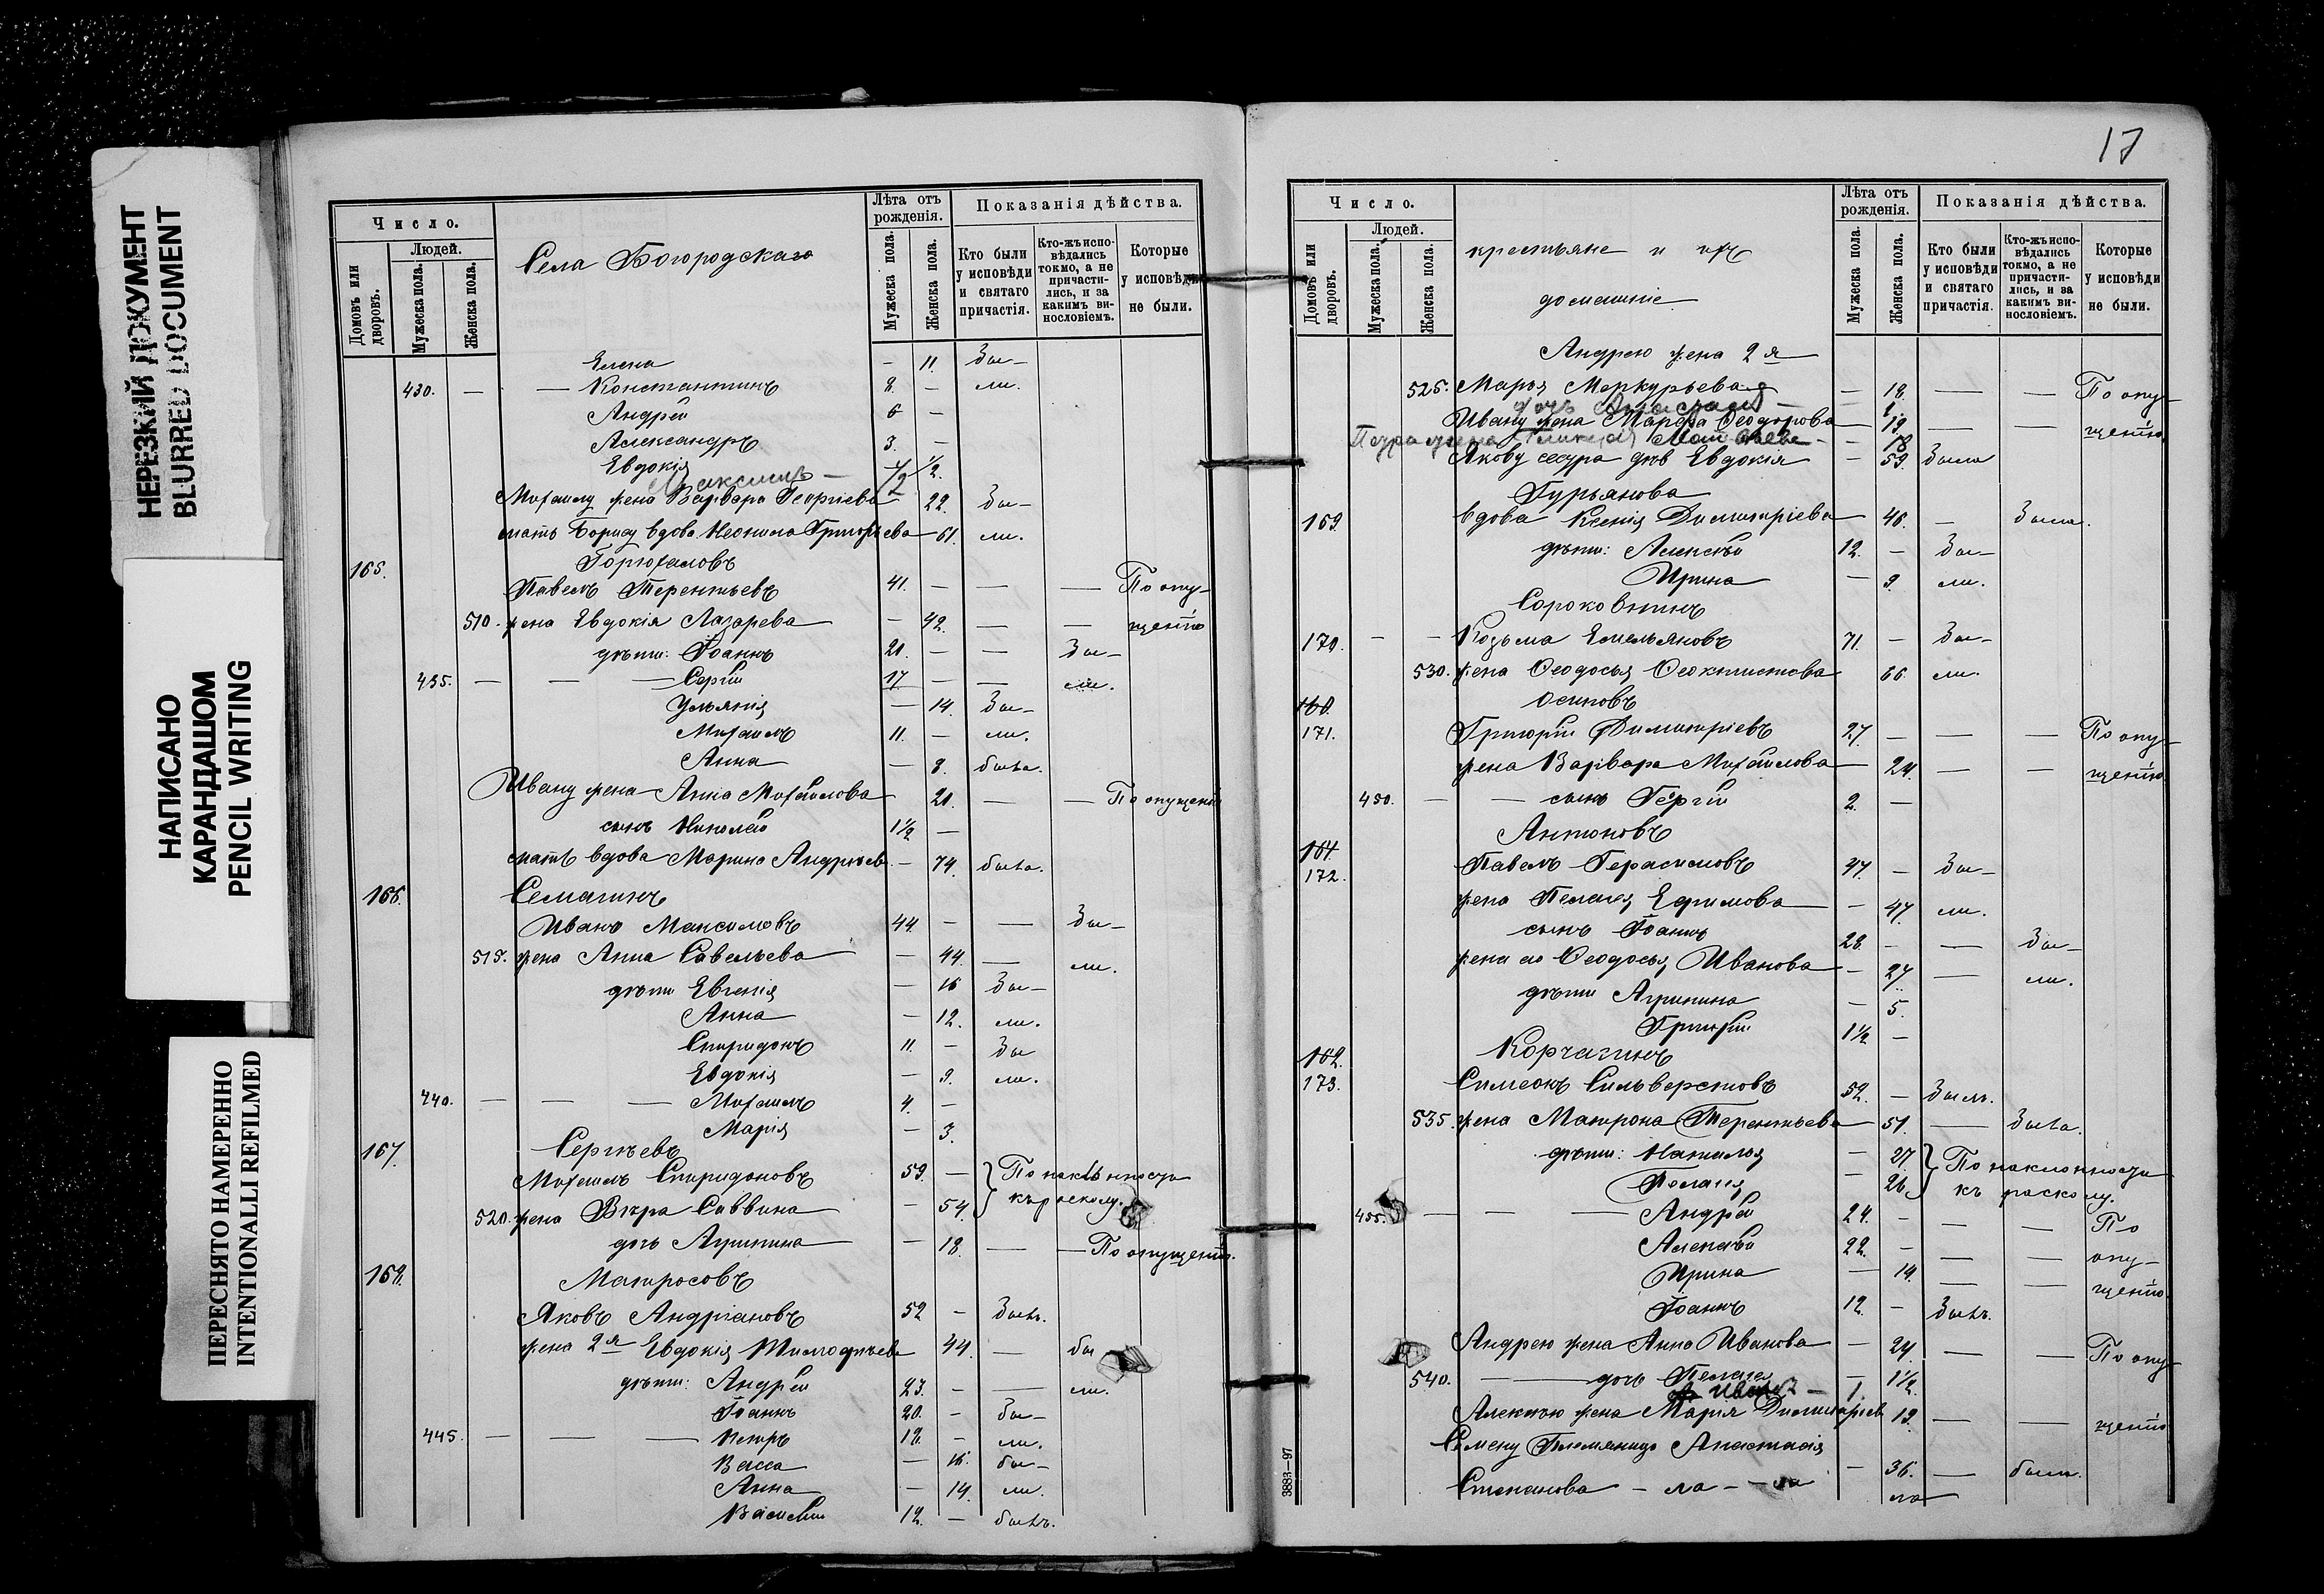 НЕРЕЗКИЙ ДОКУМЕНТ
BLURRED DOCUMENT
НАПИСАНО
КАРАНДАШОМ
PENCIL WRITING
ПЕРЕСНЯТО НАМЕРЕННО
INTENTIONALLI REFILMED
Число.
Людей.
Домовъ или дворовъ.
Мужеска пола.
Женска пола.
Села Богородскаго
Лѣта отъ рожденія.
Мужеска пола.
Женска пола.
Показанія дѣйства.
Кто были у исповѣди и святаго причастія.
Кто-жъ исповѣдались токмо, а не причастились, и за какимъ винословіемъ.
Которые у исповѣди не были.
Елена — 11. Бы-
430. — — Константинъ 8. — ли.
Андрей 6 —
Александръ 3. —
Евдокія — 1/2.
Максимъ — 1/2
Михаилу жена Варвара Георгіева 22. Бы-
мать Борису вдова Неонила Григорьева 61. ли.
165. Горюхаловъ
Павелъ Терентьевъ 41. — — — По опу-
510. жена Евдокія Лазарева — 42. — — щенію
дѣти: Іоаннъ 20. — — Бы-
435. — — — Сергій 17. — — ли.
Ульянія — 14. Бы-
Михаилъ 11. — ли.
Анна — 8. была.
Ивану жена Анна Михайлова 20. — — По опущенію
сынъ Николай 1 1/2 —
мать вдова Марина Андреева — 74. была.
166. Семагинъ
Иванъ Максимовъ 44 — — Бы-
515. жена Анна Савельева — 44. — ли.
дѣти Евгенія — 16 Бы-
Анна — 12. ли.
Спиридонъ 11. — Бы
Евдокія — 9. ли.
440. — — — Михаилъ 4. —
Марія — 3.
167. Сергѣевъ
Михаилъ Спиридоновъ 59. — По наклонности
520. жена Вѣра Саввина — 54. къ расколу.
дочь Агрипина — 18. — — По опущенію.
168. Матросовъ
Яковъ Андріановъ 52 — Былъ.
жена 2я Евдокія Тимофѣева 44. — бы
дѣти: Андрей 23. — — ли.
Іоаннъ 20. — Бы-
445. — — — Петръ 18. — ли.
Васса — 16. бы-
Анна — 14. ли.
Василій 12. — былъ.
17
Число.
Людей.
Домовъ или дворовъ.
Мужеска пола.
Женска пола.
крестьяне и ихъ
домашніе.
Лѣта отъ рожденія.
Мужеска пола.
Женска пола.
Показанія дѣйства.
Кто были у исповѣди и святаго причастія.
Кто-жъ исповѣдались токмо, а не причастились, и за какимъ винословіемъ.
Которые у исповѣди не были.
Андрею жена 2я
525. Марья Меркурьева — 18. — — По опу-
дочь Анастасія — 1.
Ивану жена Марфа Ѳеодорова 19. — — щенію.
Петра жена Гликерія — 18
Якову сестра дѣв Евдокія — 59. Была
Гурьянова
169. вдова Ксенія Димитріева 46. — Была.
дѣти: Алексѣй 12. — Бы-
Ирина — 9. ли.
Сороковнинъ
170. — — Козьма Емельяновъ 71. — Бы-
530. жена Ѳеодосья Ѳеоктистова 66. ли.
160. Осиповъ
171. Григорій Димитріевъ 27. — — — По опу-
жена Варвара Михайлова 24. — — щенію
450. — — сынъ Георгій 2. —
Антоновъ
161.
172. Павелъ Герасимовъ 47. — Бы-
жена Пелагея Ефимова — 47. ли.
сынъ Іоаннъ 28. — — Бы-
жена его Ѳеодосья Иванова — 27. — ли.
дѣти Агрипина — 5.
Григорій 1 1/2 —
162. Корчагинъ
173. Симеонъ Сильверстовъ 52. — Былъ.
535. жена Матрона Терентьева 51. — Была.
дѣти: Наталья — 27. По наклонности
Пелагея — 26. къ расколу.
455. — — — Андрей 24. — — — По
Алексѣй 22. — — — опу-
Ирина — 14. — — щенію.
Іоаннъ 12. — Былъ.
Андрею жена Анна Иванова — 24. — — По опу-
540. — — дочь Пелагея — 1 1/2.
Иванъ — 1.
Алексѣю жена Марія Димитріева 19. — — щенію
Семену Племяница Анастасія
Степанова — 36. — была.
3883—97